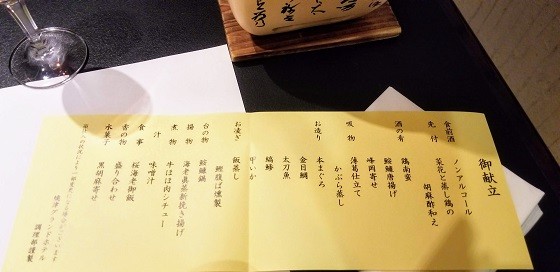 御献立
食前酒 ノンアルコール
先付 菜花と蒸し鶏の
胡麻酢和え
酒の肴 鶏南蛮
鮟鱇唐揚げ
峰岡寄せ
吸物 薄葛仕立て
かぶら蒸し
お造り 本まぐろ
金目鯛
太刀魚
縞鯵
いか
お凌ぎ 飯蒸し
鰹腹ば燻製
台の物 鮟鱇鍋
揚物 海老真薯新挽き揚げ
煮物 牛ほほ肉シチュー
汁 味噌汁
食事 桜海老御飯
香の物 盛り合わせ
水菓子 黒胡麻寄せ
焼津グランドホテル
調理部謹製